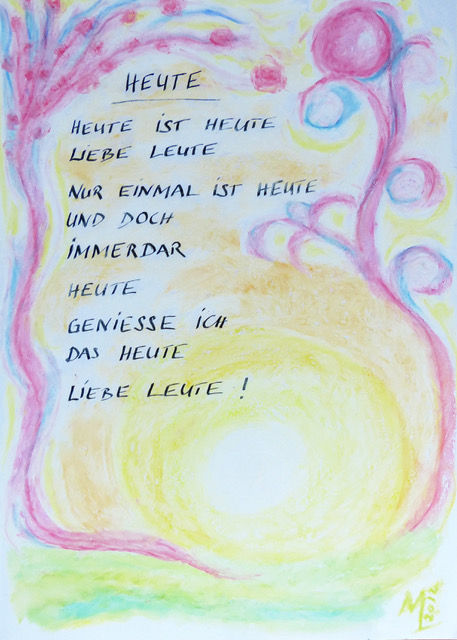 HEUTE
HEUTE IST HEUTE
LIEBE LEUTE
NUR EINMAL IST HEUTE
UND DOCH
IMMERDAR
HEUTE
GENIESSE ICH
DAS HEUTE
LIEBE LEUTE !